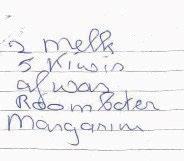 2 melk
5 Kiwis
afwas
Roomboter
Margarine